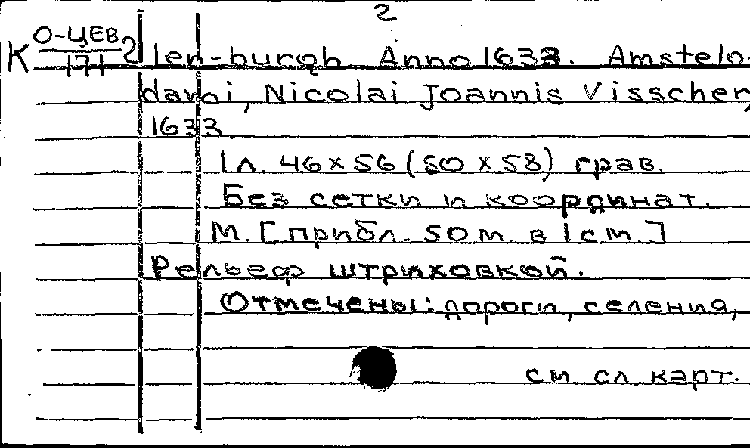 2
К О-ЦЕВ 2 len-burgh Anno 1633. Amstelo-
171
dami, Nicolai Joannis Visscher,
1633
1 л. 46 x 56 (50 x 58) грав.
Без сетки и координат.
М. [прибл. 50 м. в 1 см.]
Рельеф штриховкой.
Отмечены: дороги, селения,
см сл. карт.